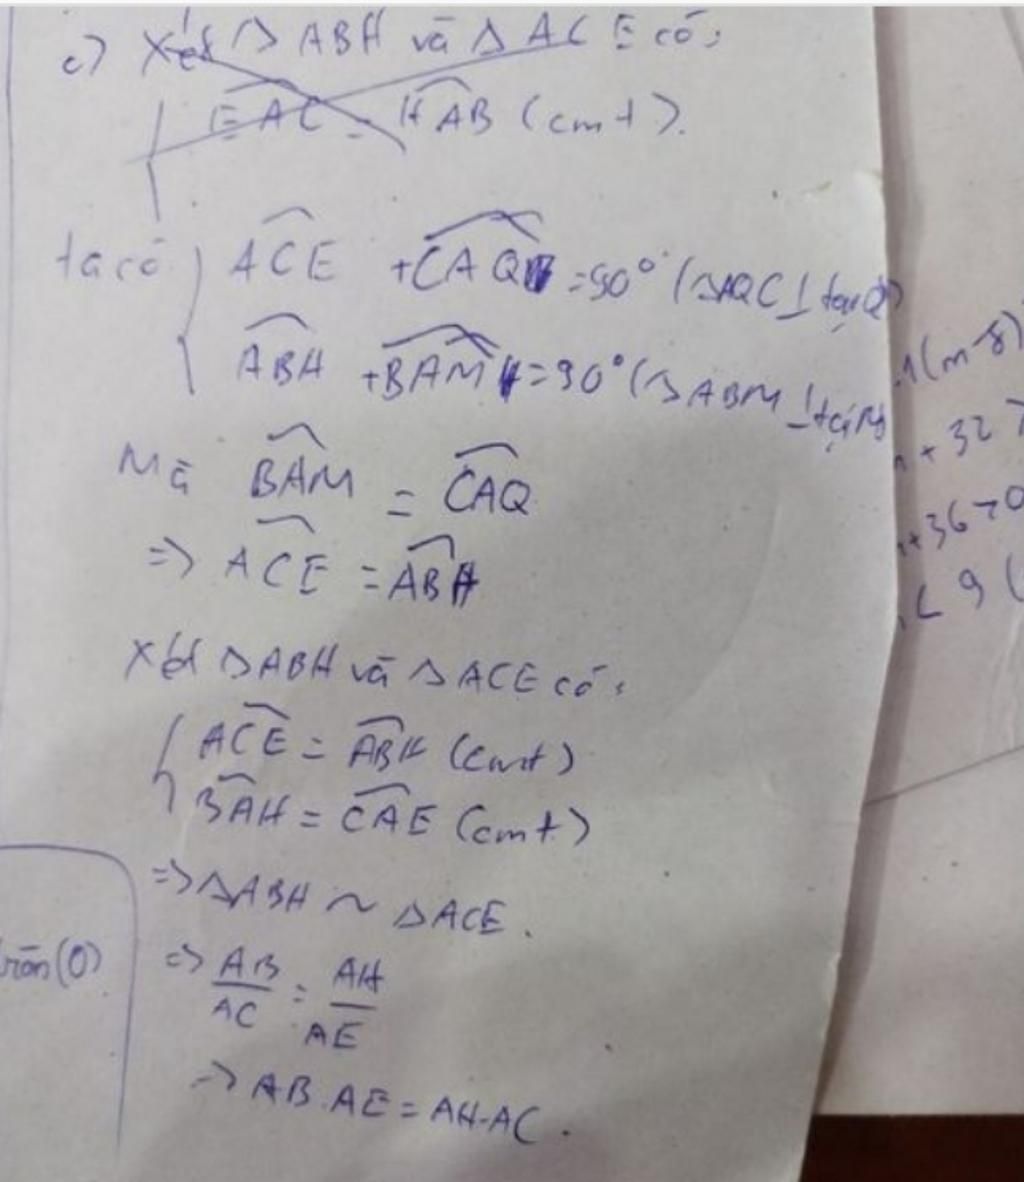 c) Xét Δ ABH và Δ ACE có:
EAC = HAB (cmt).
ta có ACE + CAQ = 90° (ΔAQC ⊥ tại Q)
ABH + BAM = 90° (Δ ABM ⊥ tại M)
Mà BAM = CAQ
=> ACE = ABH
Xét ΔABH và Δ ACE có:
ACE = ABH (cmt)
BAH = CAE (cmt)
=> ΔABH ~ ΔACE.
=> AB/AC = AH/AE
=> AB.AE = AH.AC.
(O)
1(m-8)
+ 32 >
+36>0
< 9 (